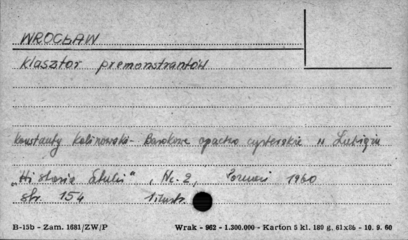 WROCŁAW
Klasztor premonstrantów
Konstanty Kalinowski - Barokowe opactwo cysterskie w Lubiążu
"Historia Sztuki", Nr. 2, Poznań 1960
str. 154 ilustr.
B-15b - Zam. 1681/ZW/P Wrak - 962 - 1.300.000 - Karton 5 kl. 180 g. 61x86 - 10. 9. 60